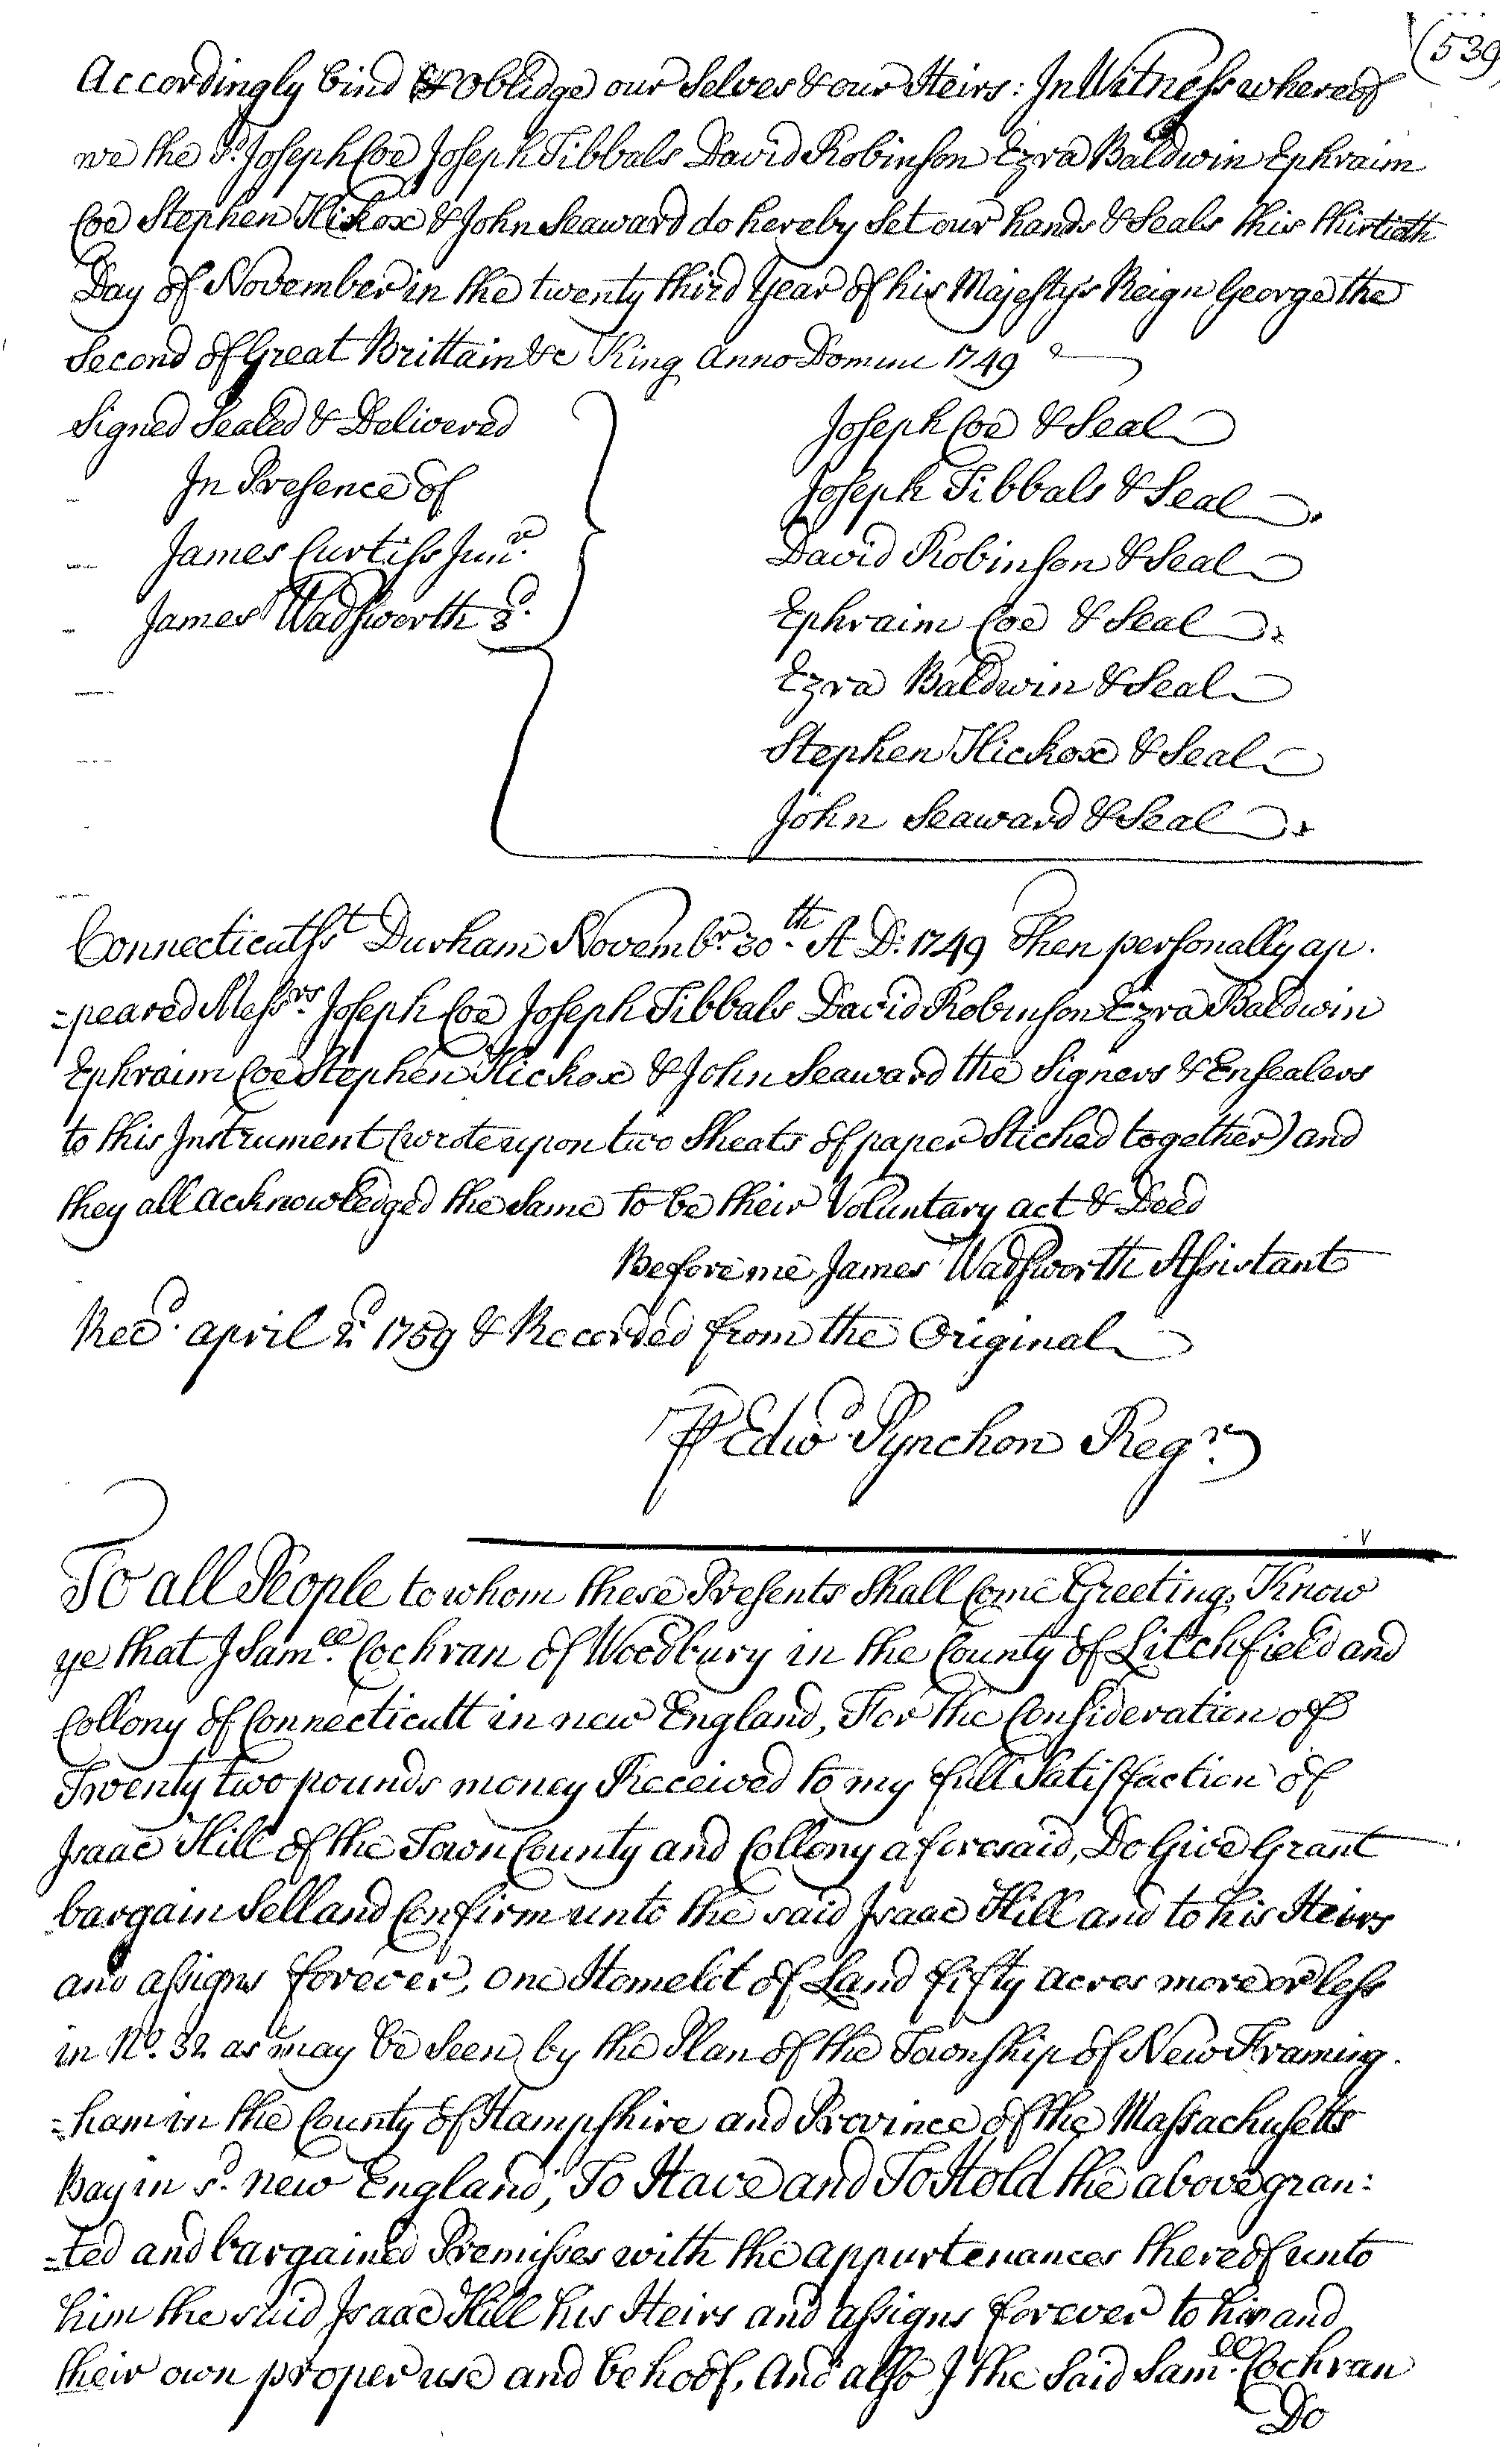 (539
Accordingly bind & Oblidge our Selves & our Heirs: In Witness whereof
we the sd. Joseph Coe Joseph Tibbals David Robinson Ezra Baldwin Ephraim
Coe Stephen Hickox & John Seaward do hereby Set our hands & Seals this thirtieth
Day of November in the twenty third Year of his Majestys Reign George the
Second of Great Brittain &c King Anno Domini 1749
Signed Sealed & Delivered
In Presence of
James Curtiss Junr.
James Wadsworth 3d.
Joseph Coe & Seal
Joseph Tibbals & Seal
David Robinson & Seal
Ephraim Coe & Seal
Ezra Baldwin & Seal
Stephen Hickox & Seal
John Seaward & Seal
Connecticut Sst Durham Novembr. 30th. A D: 1749 Then personally ap.
-peared Messrs. Joseph Coe Joseph Tibbals David Robinson Ezra Baldwin
Ephraim Coe Stephen Hickox & John Seaward the Signers & Ensealers
to this Instrument (wrote upon two Sheats of paper Stiched together) and
they all acknowledged the Same to be their Voluntary act & Deed
Before me James Wadsworth Assistant
Recd. april 2d 1759 & Recorded from the Original
P Edwd. Pynchon Regr.
To all People to whom these Presents Shall Come Greeting, Know
ye that I Samll. Cochran of Woodbury in the County of Litchfield and
Collony of Connecticutt in new England, For the Consideration of
Twenty two pounds money Received to my full Satisfaction of
Isaac Hill of the Town County and Collony aforesaid, Do Give Grant
bargain Sell and Confirm unto the said Isaac Hill and to his Heirs
and assigns forever, one Homelot of Land fifty acres more or less
in No. 32 as may be Seen by the Plan of the Township of New Framing.
-ham in the County of Hampshire and Province of the Massachusetts
Bay in sd. new England, To Have and To Hold the above gran:
-ted and bargained Premisses with the appurtenances thereof unto
him the said Isaac Hill his Heirs and assigns forever to him and
their own proper use and behoof, And also I the Said Samll. Cochran
Do